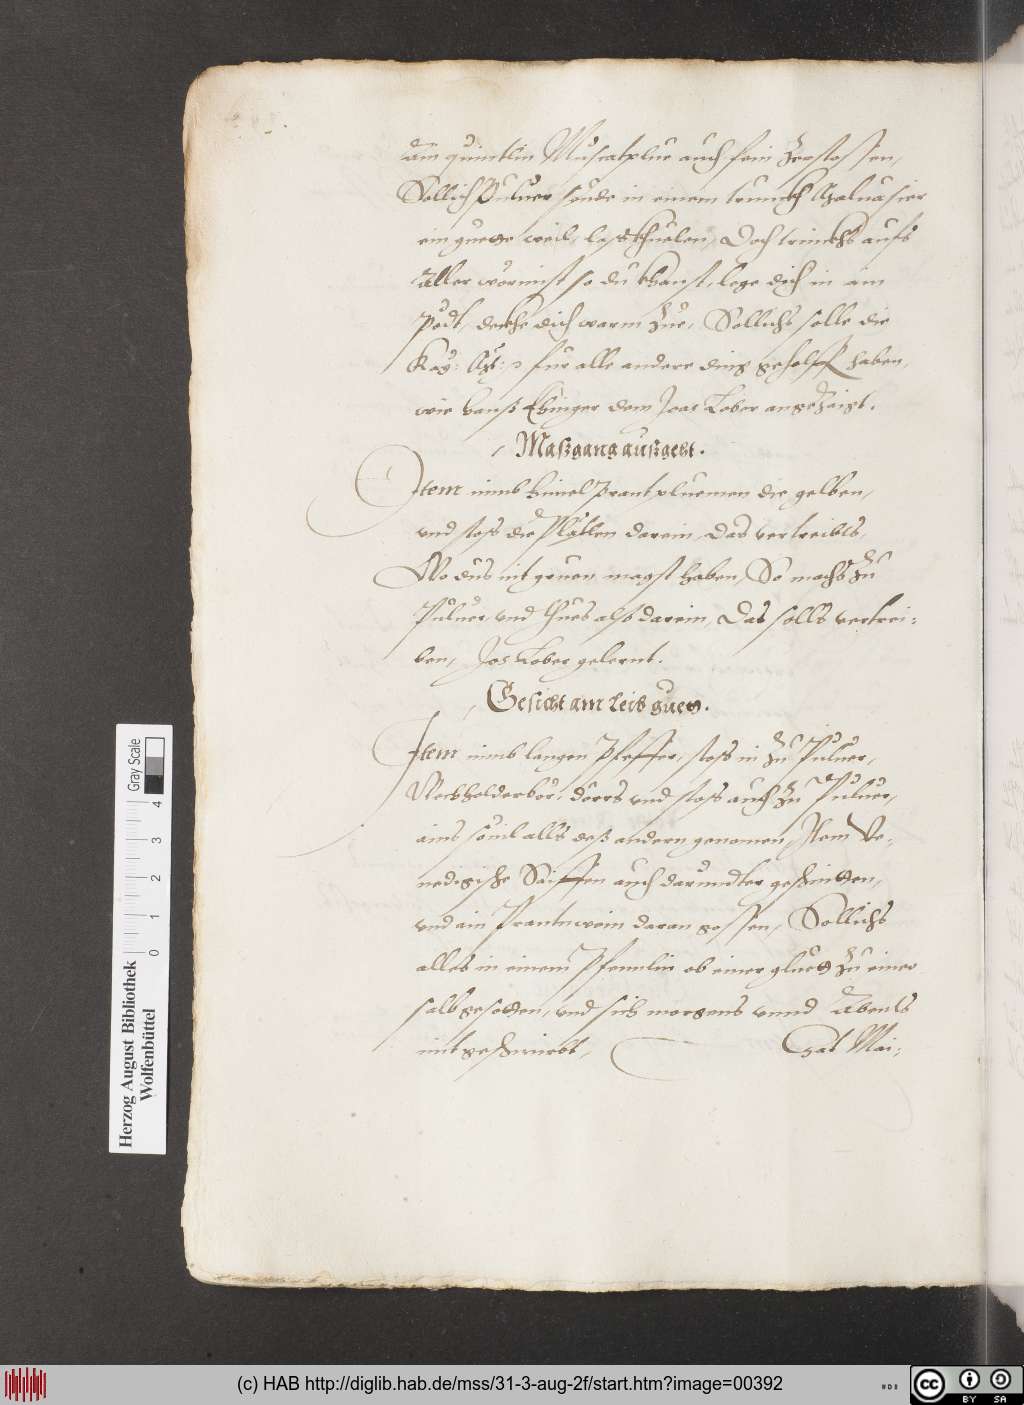 ain quintlin Muscatplue auch fein zerstossen,
Sollich Puluer seude in einem trunckh Maluasier
ein guete weil, lass khuelen, Doch trinckhs aufs
Aller wörmist so du khanst, lege dich in ain
Pedt, deckhe dich warm zue, Sollichs solle die
Kay: Mt: für alle andere ding geholff haben,
wie Hanß Ebinger dem Joas Kober angezeigt.
Maßgang außgeet.
Item nimb himel prantpluemen die gelben,
vnd stoss die Pletten darein, Das vertreibts,
Wo dus nit gruen magst haben, So machs zu
Puluer, vnd thues also darein, Das solls vertrei:
ben, Jos Kober gelernt.
Gesicht am leib guet.
Item nimb langen Pfeffer, stoss in zu Puluer,
Weckholderbör, dörrs vnd stoss auch zu Puluer,
ains souil alls deß andern genomen, Item Ve:
nedigische Saiffen auch darundter geschnitten,
vnd ain Prantnwein daran gossen, Sollichs
alles in einem Pfenndlin ob einer gluet zu einer
salb gesotten, vnd sich morgens vnnd Abents
mit geschmirbt,
Hat Mai:
Herzog August Bibliothek
Wolfenbüttel
0 1 2 3 4
Gray Scale
(c) HAB http://diglib.hab.de/mss/31-3-aug-2f/start.htm?image=00392
cc BY SA